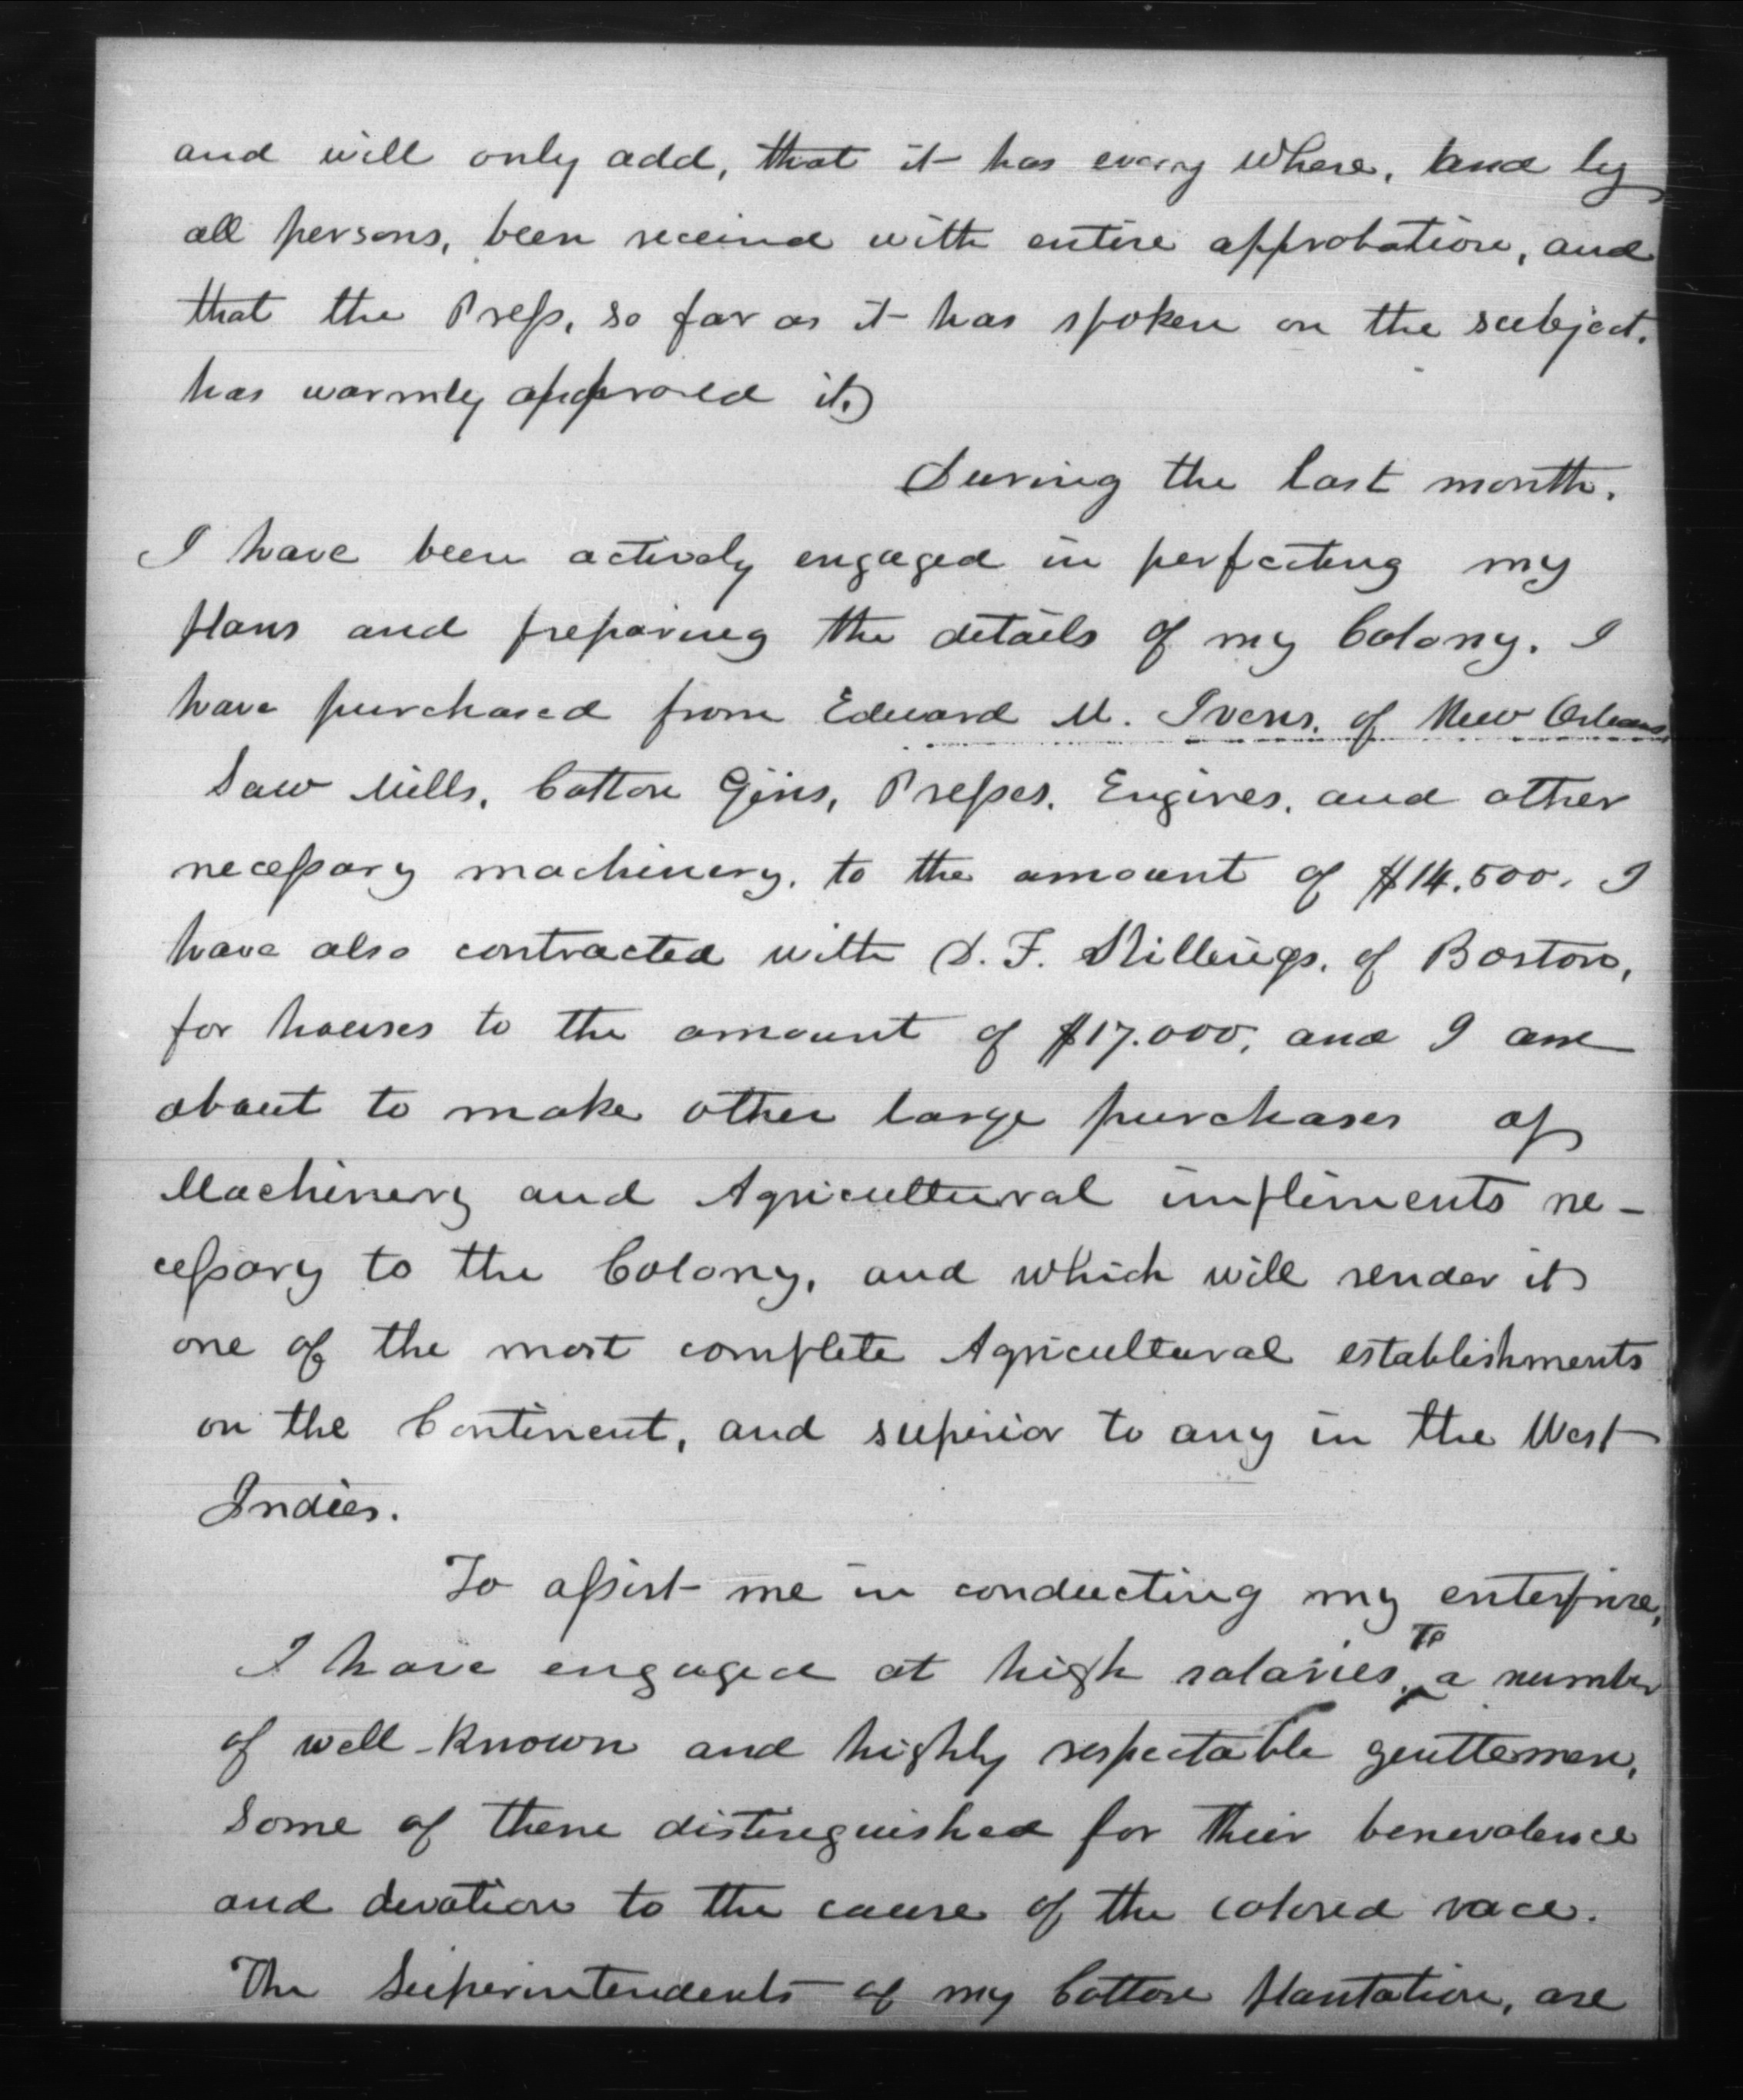 and will only add, that it has every where, and by
all persons, been received with entire approbation, and
that the Press, so far as it has spoken on the subject.
has warmly approved it.
During the last month.
I have been actively engaged in perfecting my
plans and preparing the details of my Colony. I
have purchased from Edward M. Ivens, of New Orleans,
Saw Mills, Cotton Gins, Presses, Engines, and other
necessary machinery, to the amount of $14.500. I
have also contracted with D. F. Skillings, of Boston,
for houses to the amount of $17.000, and I am
about to make other large purchases of
Machinery and Agricultural impliments ne-
cessary to the Colony, and which will render it
one of the most complete Agricultural establishments
on the Continent, and superior to any in the West
Indies.
To assist me in conducting my enterprize,
I have engaged at high salaries, to a number
of well-known and highly respectable gentlemen,
some of them distinguished for their benevolence
and devotion to the cause of the colored race.
The Superintendents of my Cotton plantation, are